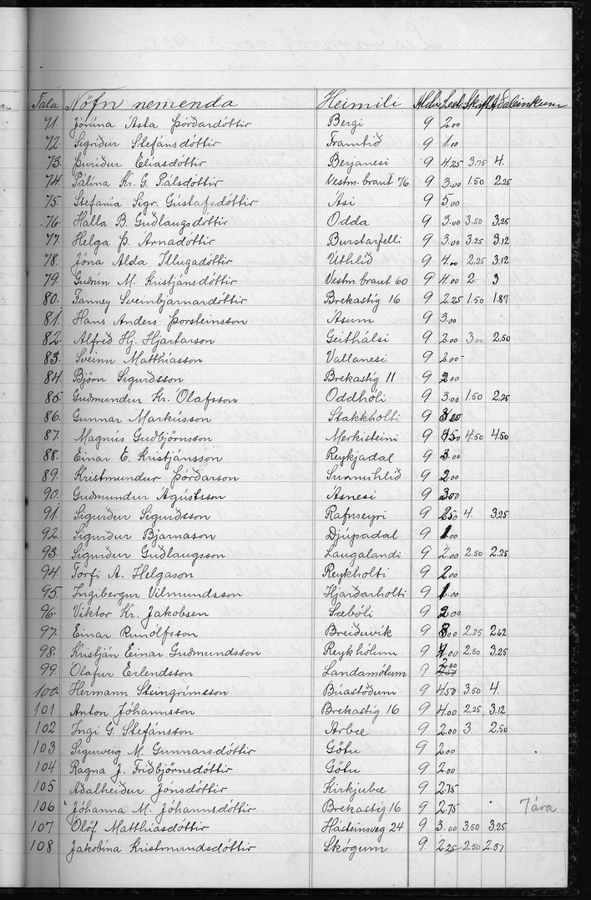 Tala Nöfn nemenda Heimili Aldur Lestr. Skrift Aðaleinkunn
71. Jónína Asta Þórðardóttir Bergi 9 2.00
72. Sigríður Stefánsdóttir Framtíð 9 1.00
73. Þuríður Elíasdóttir Berjanesi 9 4.25 3.75 4.
74. Pálína Kr. G. Pálsdóttir Vestm.braut 76 9 3.00 1.50 2.25
75. Stefanía Sigr. Gústafsdóttir Asi 9 5.00
76. Halla B. Guðlaugsdóttir Odda 9 3.00 3.50 3.25
77. Helga Þ. Arnadóttir Burstarfelli 9 3.00 3.25 3.12
78. Jóna Alda Illugadóttir Uthlíð 9 4.00 2.25 3.12
79. Guðrún M. Kristjánsdóttir Vestm.braut 60 9 4.00 2. 3
80. Fanney Sveinbjarnardóttir Brekastíg 16 9 2.25 1.50 1.87
81. Hans Anders Þorsteinsson Asum 9 3.00
82. Alfreð Hj. Hjartarson Geithálsi 9 2.00 3.00 2.50
83. Sveinn Matthíasson Vallanesi 9 2.00
84. Björn Sigurðsson Brekastíg 11 9 2.00
85. Guðmundur Kr. Olafsson Oddhóli 9 3.00 1.50 2.25
86. Gunnar Markússon Stakkholti 9 3.00
87. Magnús Guðbjörnsson Merkisteini 9 4.50 4.50 4.50
88. Einar E. Kristjánsson Reykjadal 9 3.00
89. Kristmundur Þórðarson Sunnuhlíð 9 2.00
90. Guðmundur Ágústsson Ásnesi 9 3.00
91. Sigurður Sigurðsson Rafnseyri 9 2.50 4. 3.25
92. Sigurður Bjarnason Djúpadal 9 1.00
93. Sigurður Guðlaugsson Laugalandi 9 2.00 2.50 2.25
94. Torfi A. Helgason Reykholti 9 2.00
95. Ingibergur Vilmundsson Hjarðarholti 9 1.00
96. Viktor Kr. Jakobsen Sæbóli 9 2.00
97. Einar Runólfsson Breiðuvík 9 3.00 2.25 2.62
98. Kristján Einar Guðmundsson Reykhólum 9 4.00 2.50 3.25
99. Olafur Erlendsson Landamótum 9 2.00
100. Hermann Steingrímsson Buastöðum 9 4.50 3.50 4.
101 Anton Jóhannsson Brekastíg 16 9 4.00 2.25 3.12
102 Ingi G. Stefánsson Arbæ 9 2.00 3. 2.50
103 Sigurveig M. Gunnarsdóttir Götu 9 2.00
104 Ragna J. Friðbjörnsdóttir Götu 9 2.00
105 Aðalheiður Jónsdóttir Kirkjubæ 9 2.75
106 Jóhanna M. Jóhannsdóttir Brekastíg 16 9 2.75 7 ára
107 Olöf Matthíasdóttir Hásteinsveg 24 9 3.00 3.50 3.25
108 Jakobína Kristmundsdóttir Skógum 9. 2.25 2.50 2.37